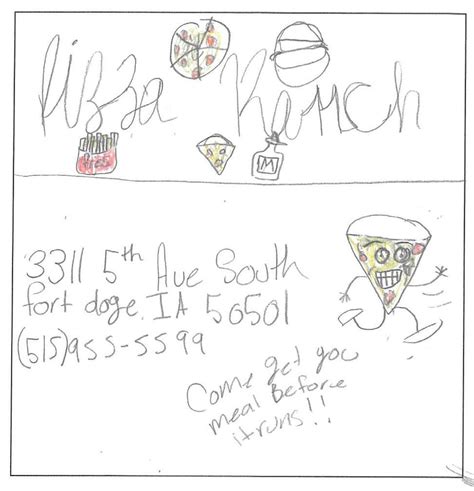 Pizza Ranch
Fries
M
3311 5th Ave South
fort doge, IA 50501
(515)955-5599
Come get you
meal Before
it runs!!